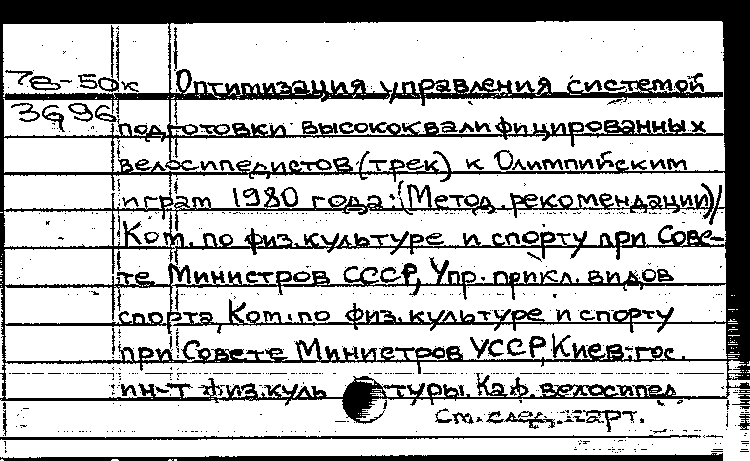 78-50к Оптимизация управления системой
3696 подготовки высококвалифицированных
велосипедистов (трек) к Олимпийским
играм 1980 года: (Метод. рекомендации)/
Ком. по физ. культуре и спорту при Сове-
те Министров СССР, Упр. прикл. видов
спорта, Ком. по физ. культуре и спорту
при Совете Министров УССР, Киев. гос.
ин-т физ. культуры. Каф. велосипед.
См. след. карт.